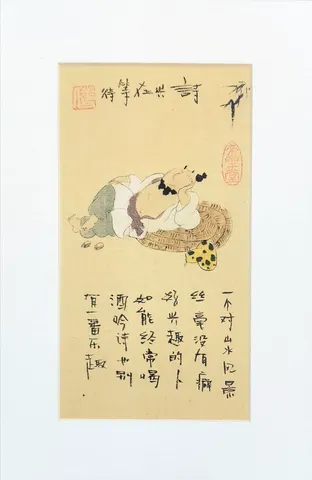 詩兴狂待
一个对山水风景
丝毫没有癖
好兴趣的人
如能经常喝
酒吟诗也别
有一番乐趣